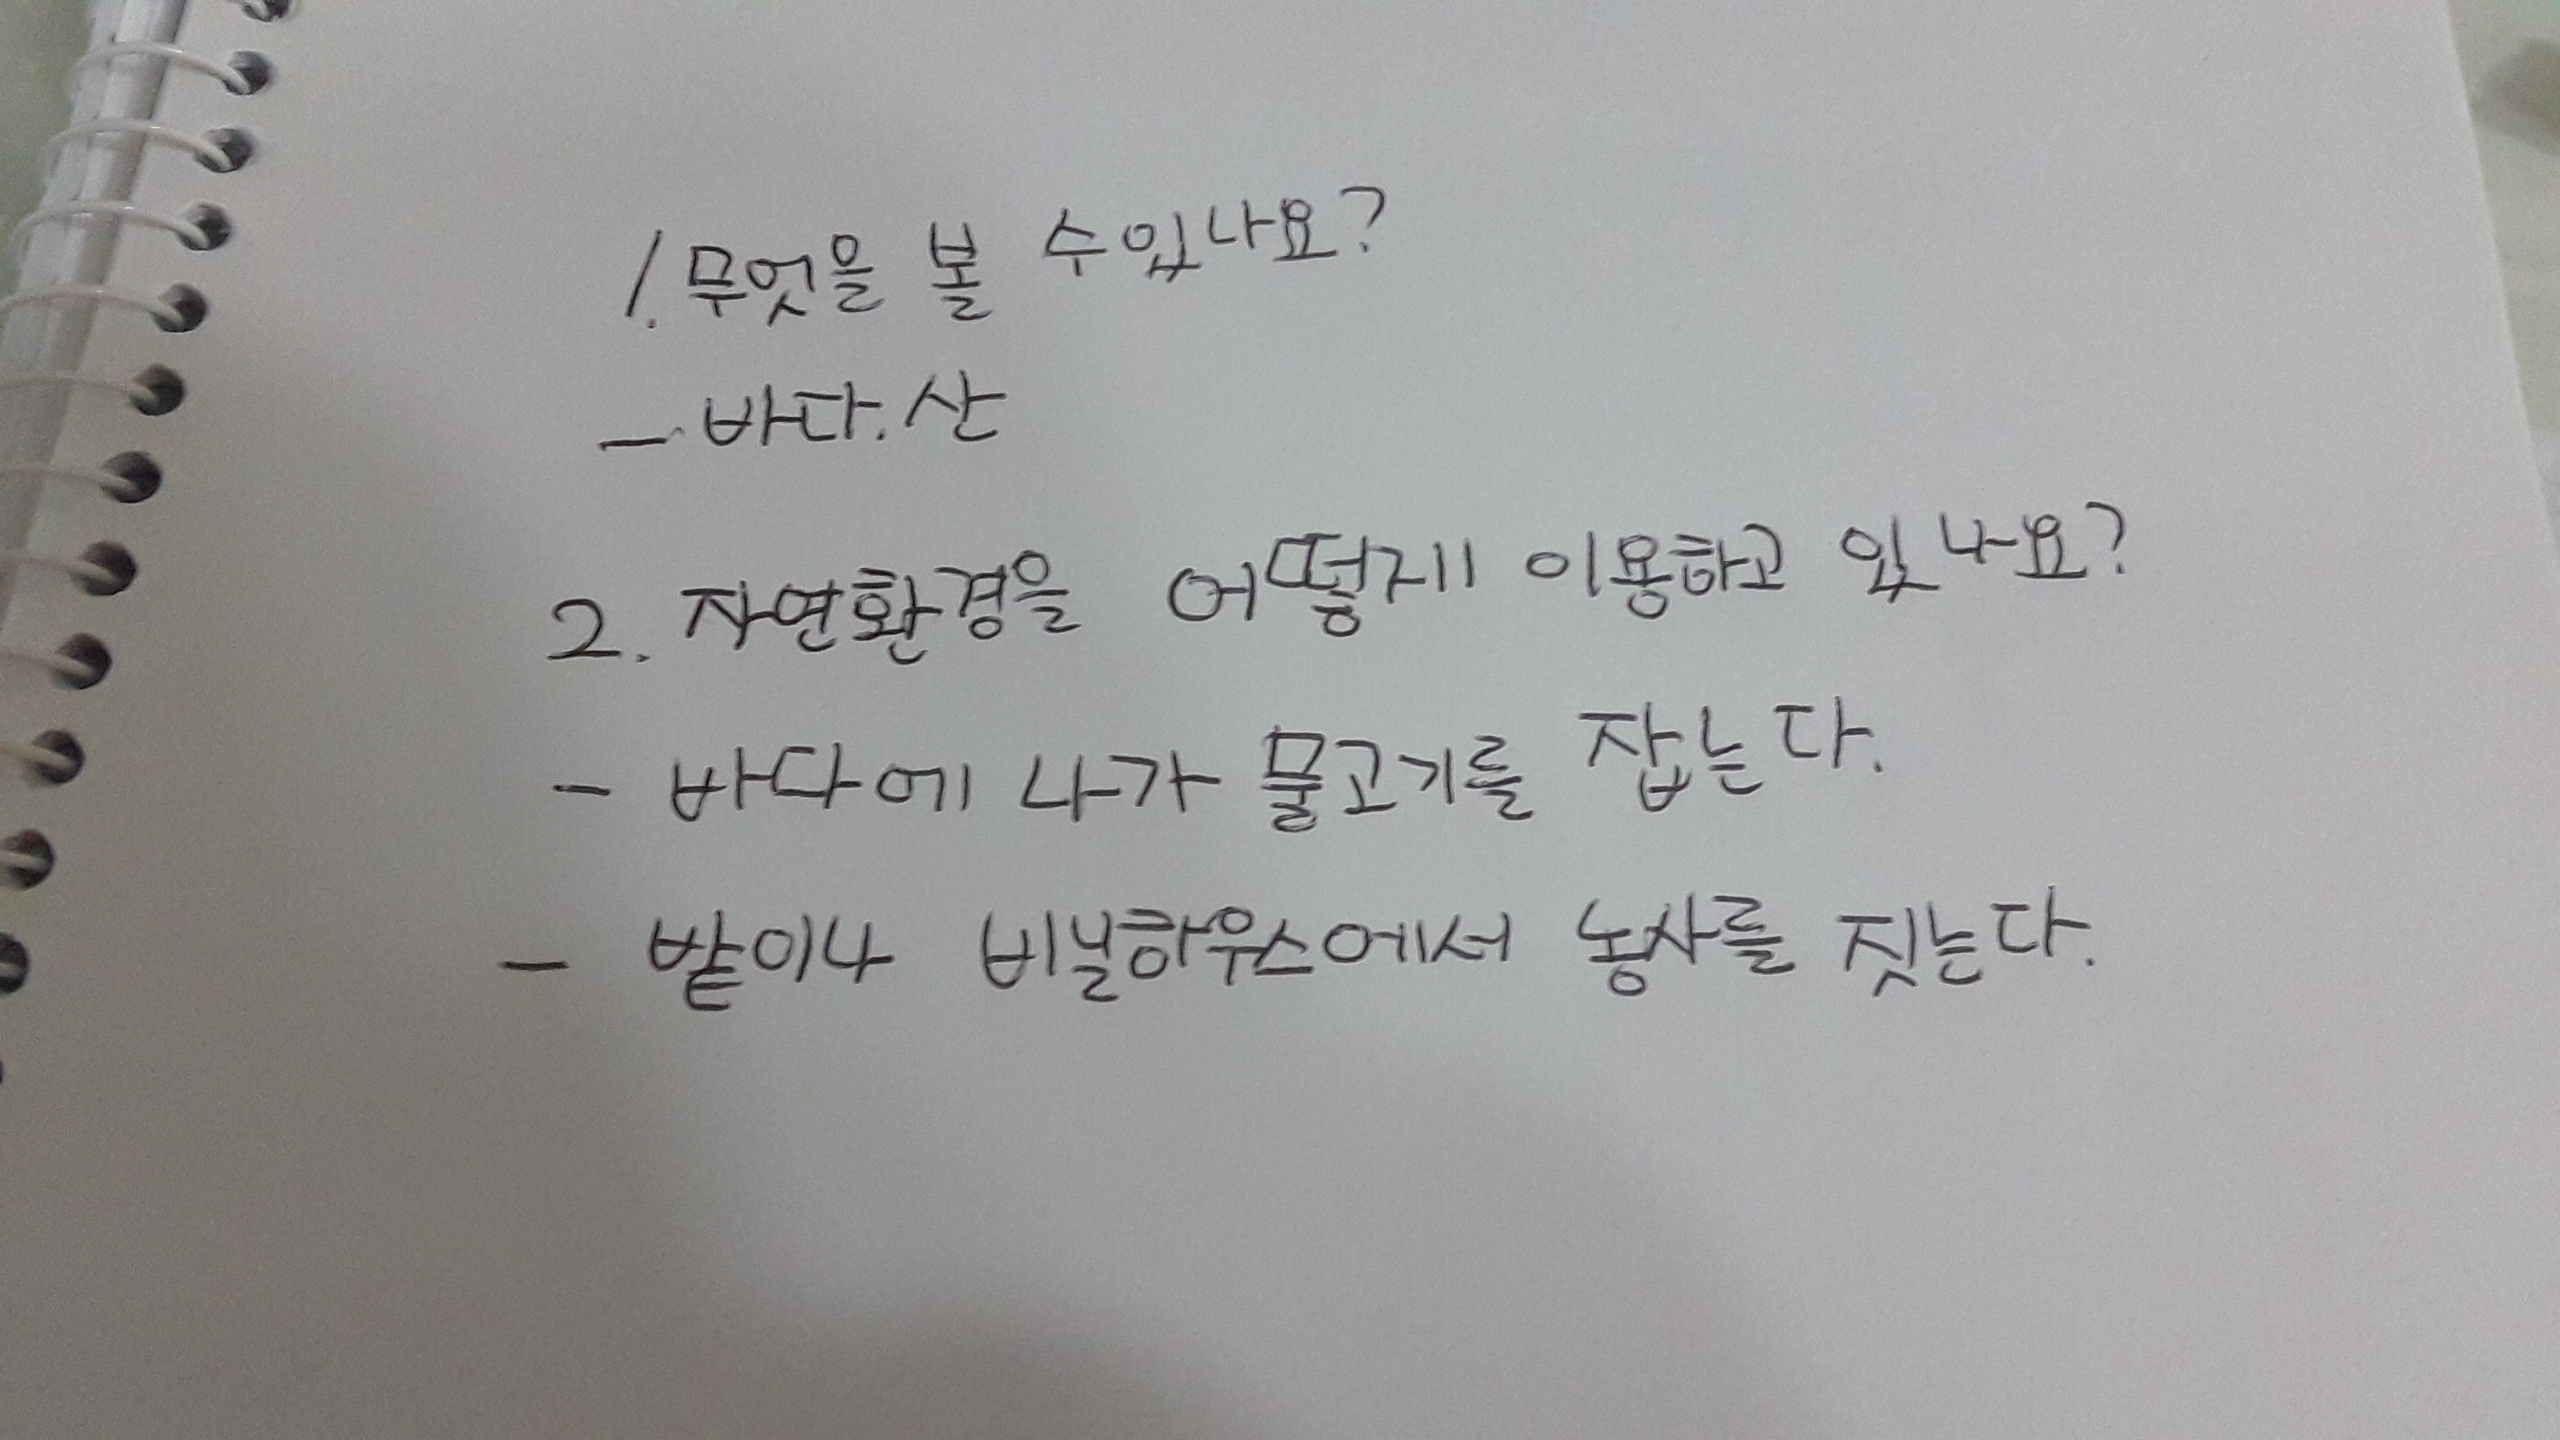 1. 무엇을 볼 수있나요?
- 바다. 산
2. 자연환경을 어떻게 이용하고 있나요?
- 바다에 나가 물고기를 잡는다.
- 밭이나 비닐하우스에서 농사를 짓는다.